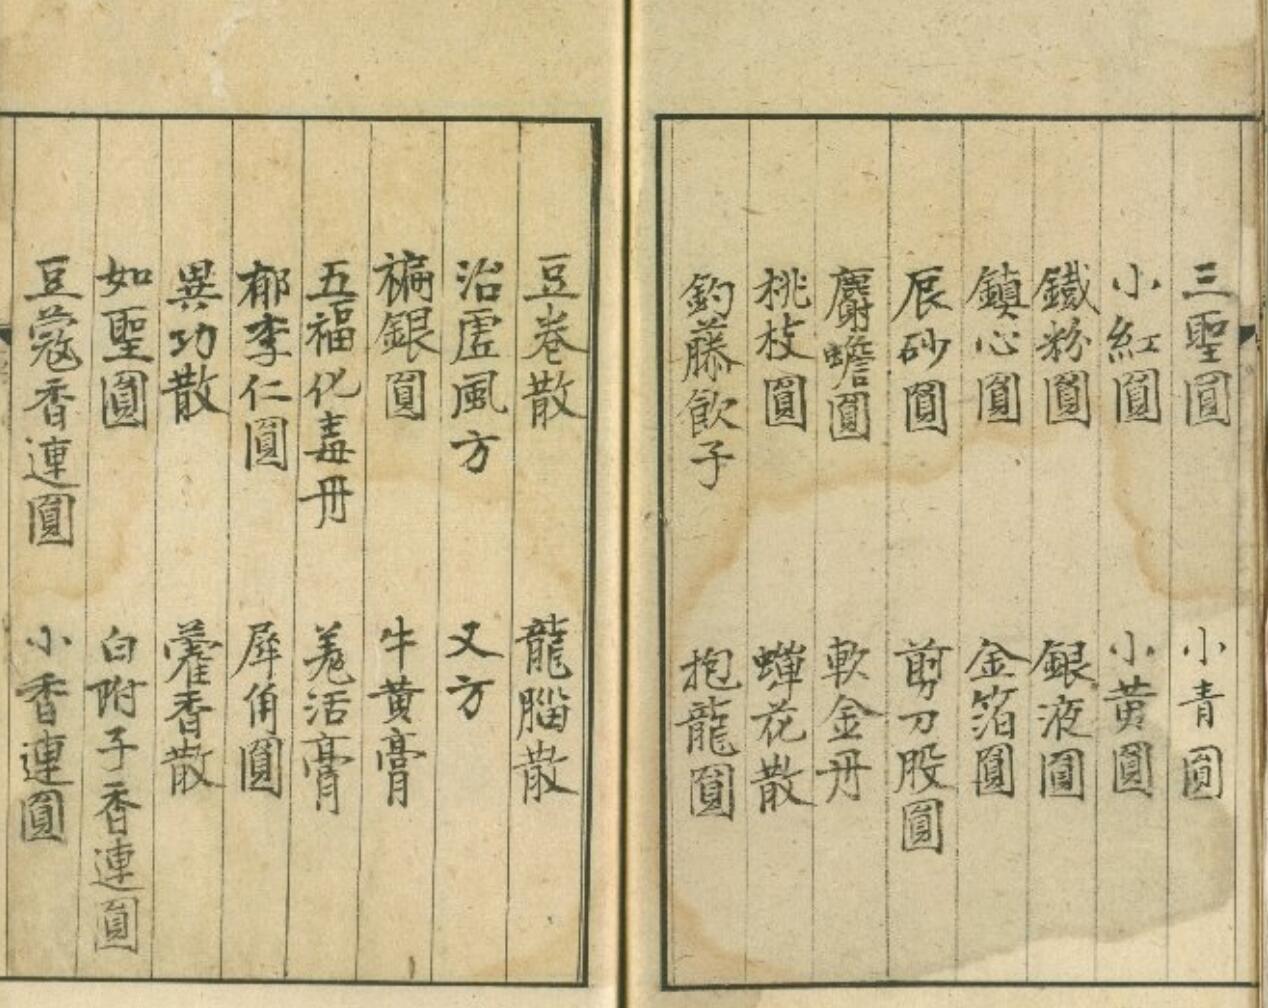 三聖圓　小青圓
小紅圓　小黃圓
鐵粉圓　銀液圓
鎮心圓　金箔圓
辰砂圓　剪刀股圓
麝蟾圓　軟金丹
桃枝圓　蟬花散
釣藤飲子　抱龍圓
豆卷散　龍腦散
治虛風方　又方
褊銀圓　牛黃膏
五福化毒丹　羌活膏
郁李仁圓　犀角圓
異功散　藿香散
如聖圓　白附子香連圓
豆蔻香連圓　小香連圓